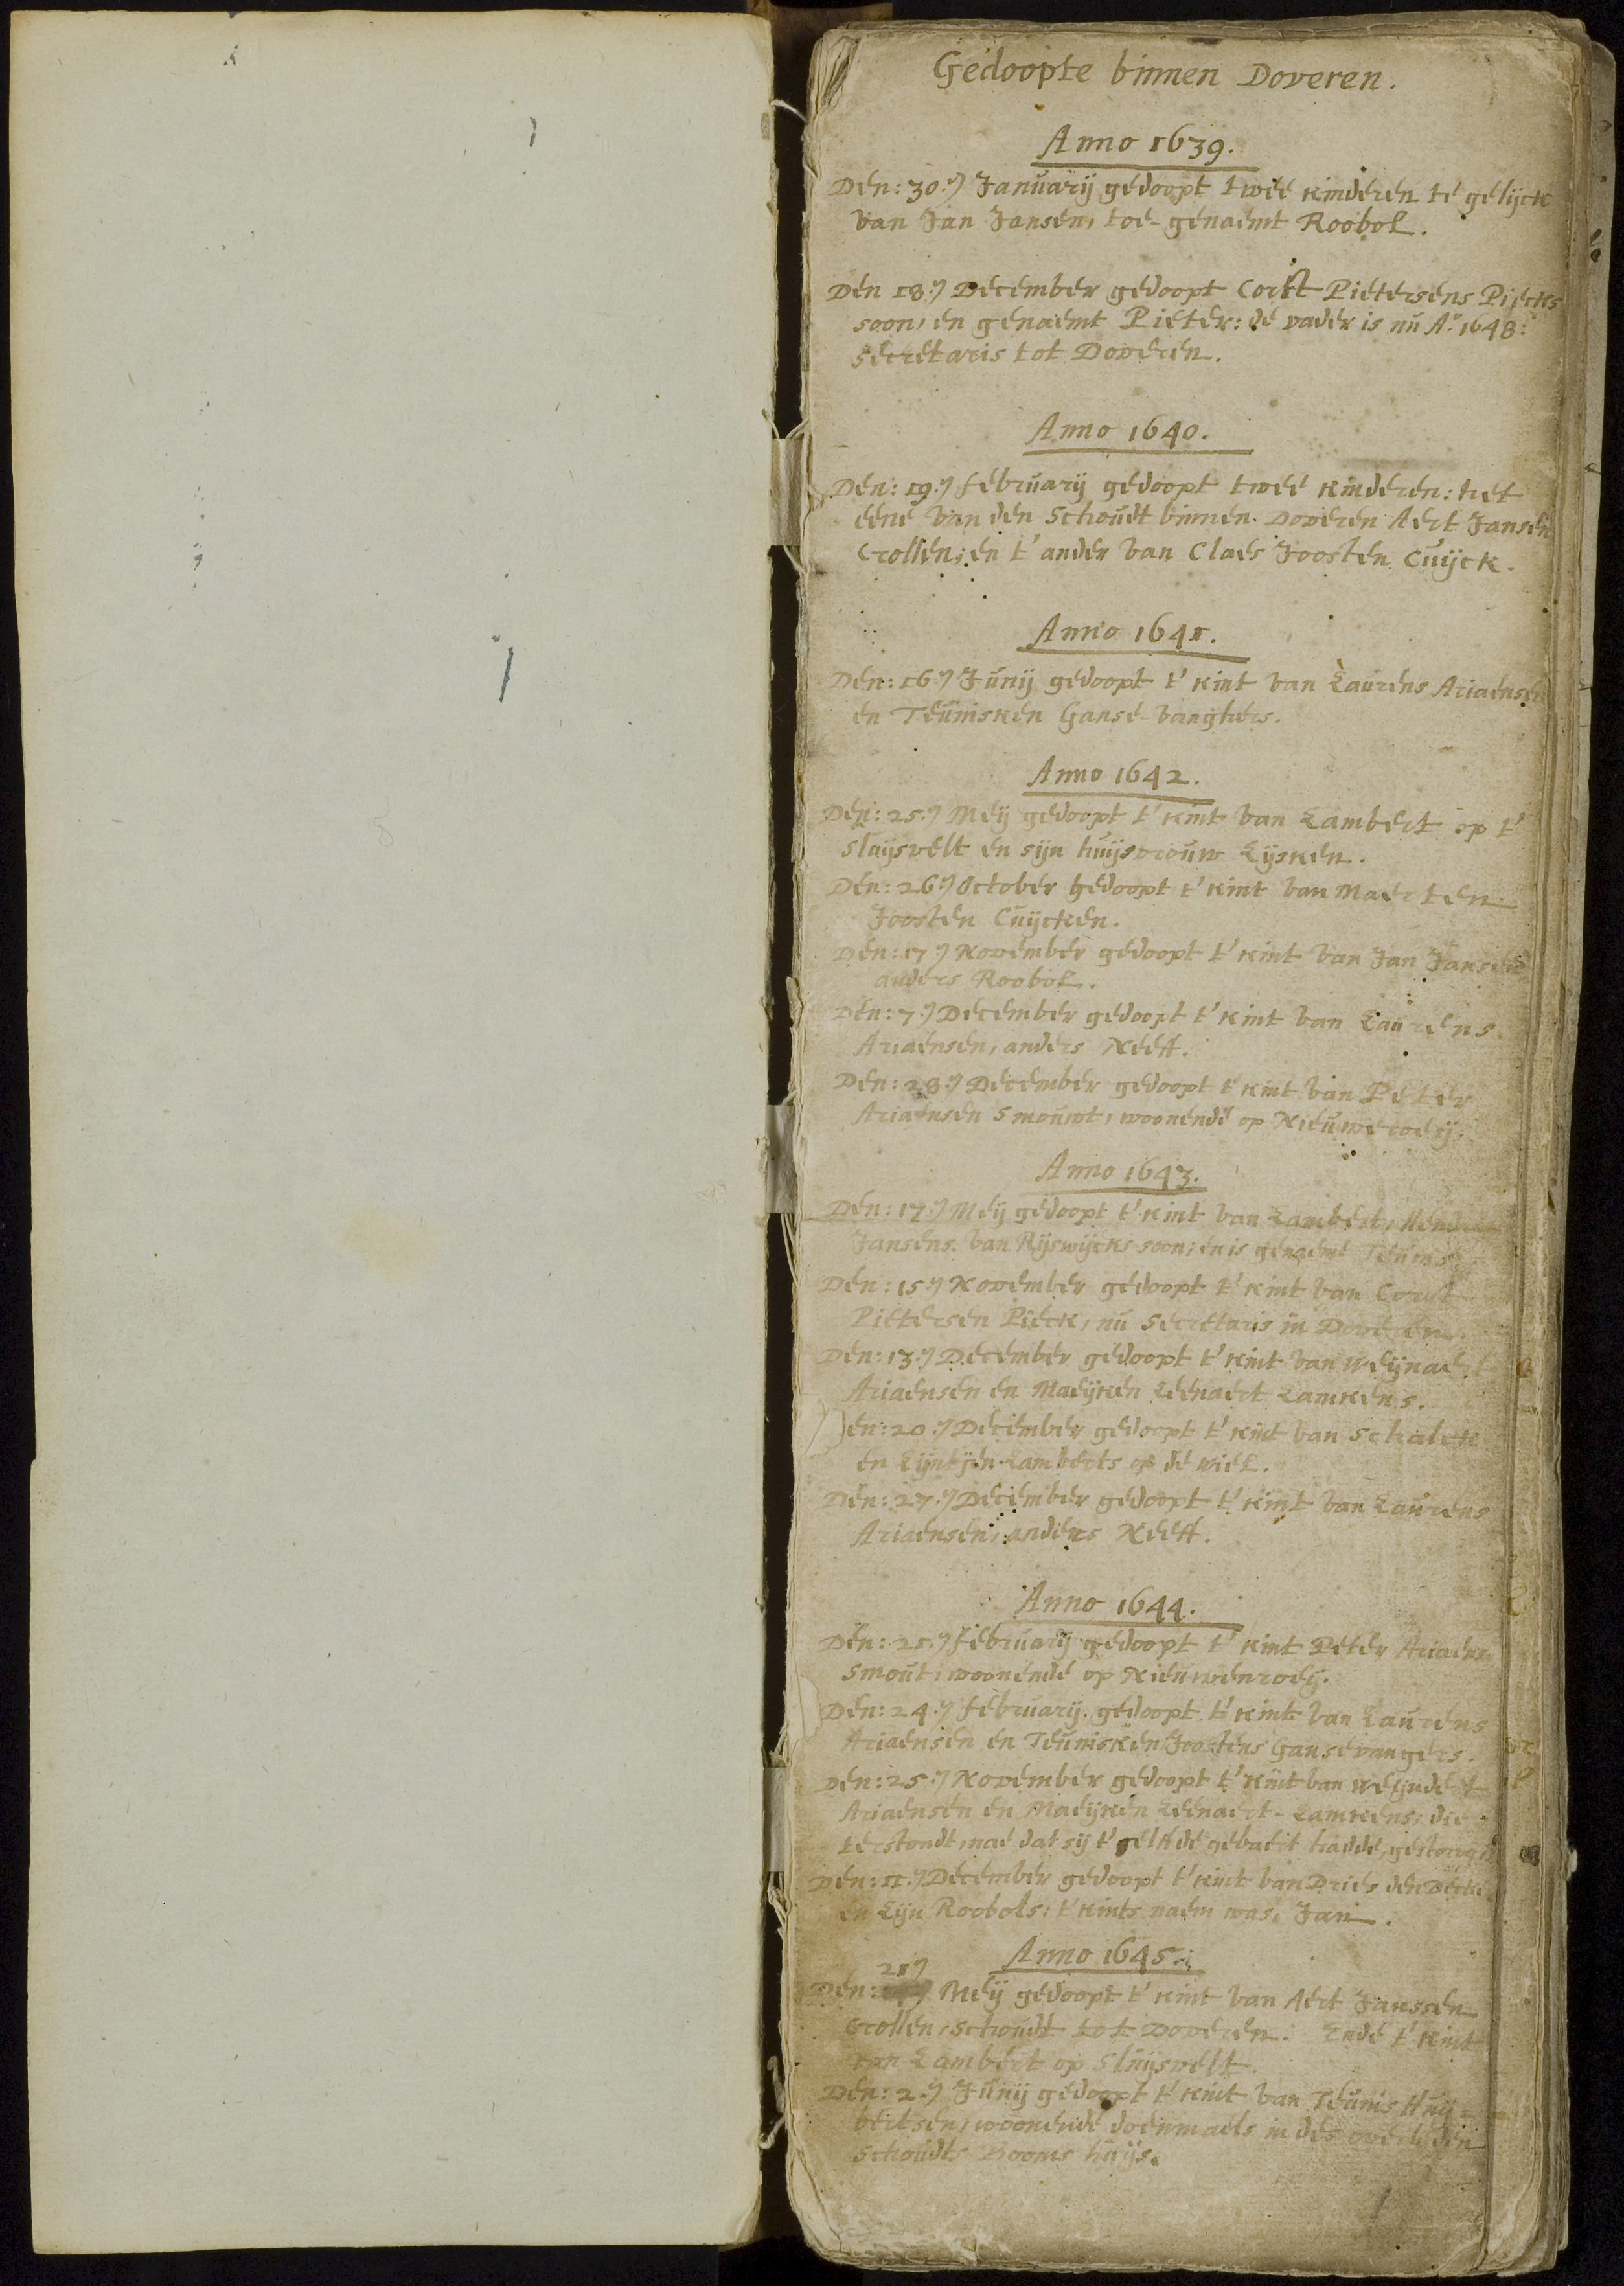 Gedoopte binnen Doveren.
Anno 1639.
Den: 30.) Januarij gedoopt twee kinderen te gelijck
van Jan Jansen, toe-genaemt Roobol.
Den 18.) December gedoopt Corst Pietersens Piecks
soon, en genaemt Pieter: de vader is nu Aº 1648:
secretaris tot Doveren.
Anno 1640.
Den: 19.) februarij gedoopt twee kinderen: het
eene van den Schoudt binnen Doveren Aert Jansen
Crollen; en t' ander van Claes Joosten Cuijck.
Anno 1641.
Den: 16.) Junij gedoopt t' kint van Laurens Ariaensen
en Teunisken Ganse-vanghers.
Anno 1642.
Den: 25.) Meij gedoopt t' kint van Lambert op t'
Sluijsvelt en sijn huijsvrouw Lijsken.
Den: 26.) October gedoopt t' kint van Maerten
Joosten Cuijcken.
Den: 17.) November gedoopt t' kint van Jan Jansen
anders Roobol.
Den: 7.) December gedoopt t' kint van Laurens
Ariaensen, anders Neeff.
Den: 28.) December gedoopt t' kint van Peter
Ariaensen Smouwt, woonende op Nieuweroeij.
Anno 1643.
Den: 17.) Meij gedoopt t' kint van Lambert,
Jansens van Rijswijcks soon; en is genaemt Teunis.
Den: 15.) November gedoopt t' kint van Corst
Pietersen Pieck, nu secretaris in Doveren.
Den: 13.) December gedoopt t' kint van Weijnaert
Ariaensen en Maeijken Leenaert Lamkens.
Den: 20.) December gedoopt t' kint van Schalck
en Lijntjen Lamberts op de wiel.
Den: 27.) December gedoopt t' kint van Laurens
Ariaensen, anders Neeff.
Anno 1644.
Den: 21.) februarij gedoopt t' kint Peter Ariaens
Smout, woonende op Nieuwenroeij.
Den: 24.) februarij gedoopt t' kint van Laurens
Ariaensen en Teunisken Joostens Gansevangers.
Den: 25.) November gedoopt t' kint van Weijndert
Ariaensen en Maeijken Leenaert-Lamkens; die
terstondt, nae dat sij t' selfde gebaert hadde, gestorven
Den: 11.) December gedoopt t' kint van Dries den Decker
en Lijn Roobols: t' kints naem was, Jan.
Anno 1645.
21)
Den: Meij gedoopt t' kint van Aert Janssen
Crollen, schoudt tot Doveren. Ende t' kint
van Lambert op Sluijsvelt.
Den: 2.) Junij gedoopt t' kint van Teunis Huij-
bertsen, woonende doenmaels in des
schoudts Booms huijs.